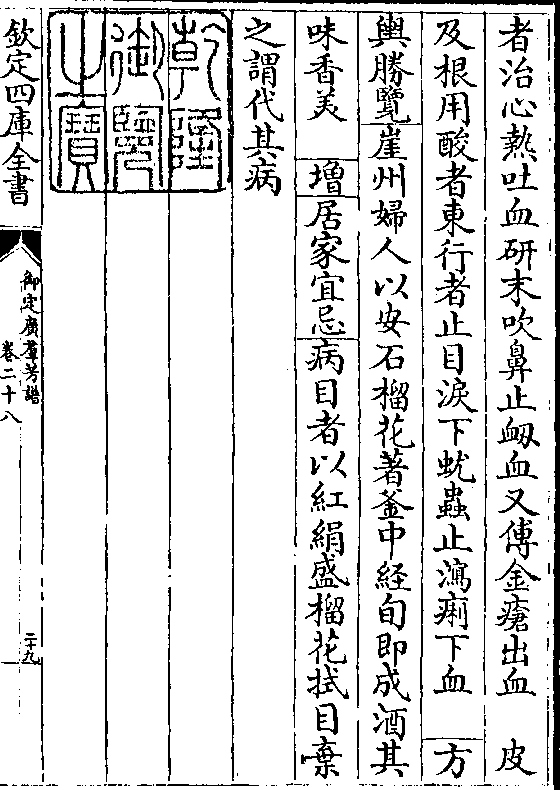 者治心熱吐血研末吹鼻止衂血又傅金瘡出血　皮
及根用酸者東行者止目淚下蚘蟲止瀉痢下血　方
輿勝覽崖州婦人以安石榴花著釜中経旬即成酒其
味香美　増居家宜忌病目者以紅絹盛榴花拭目棄
之謂代其病
乾隆御覽之寶
欽定四庫全書
御定廣羣芳譜
卷二十八
二十九